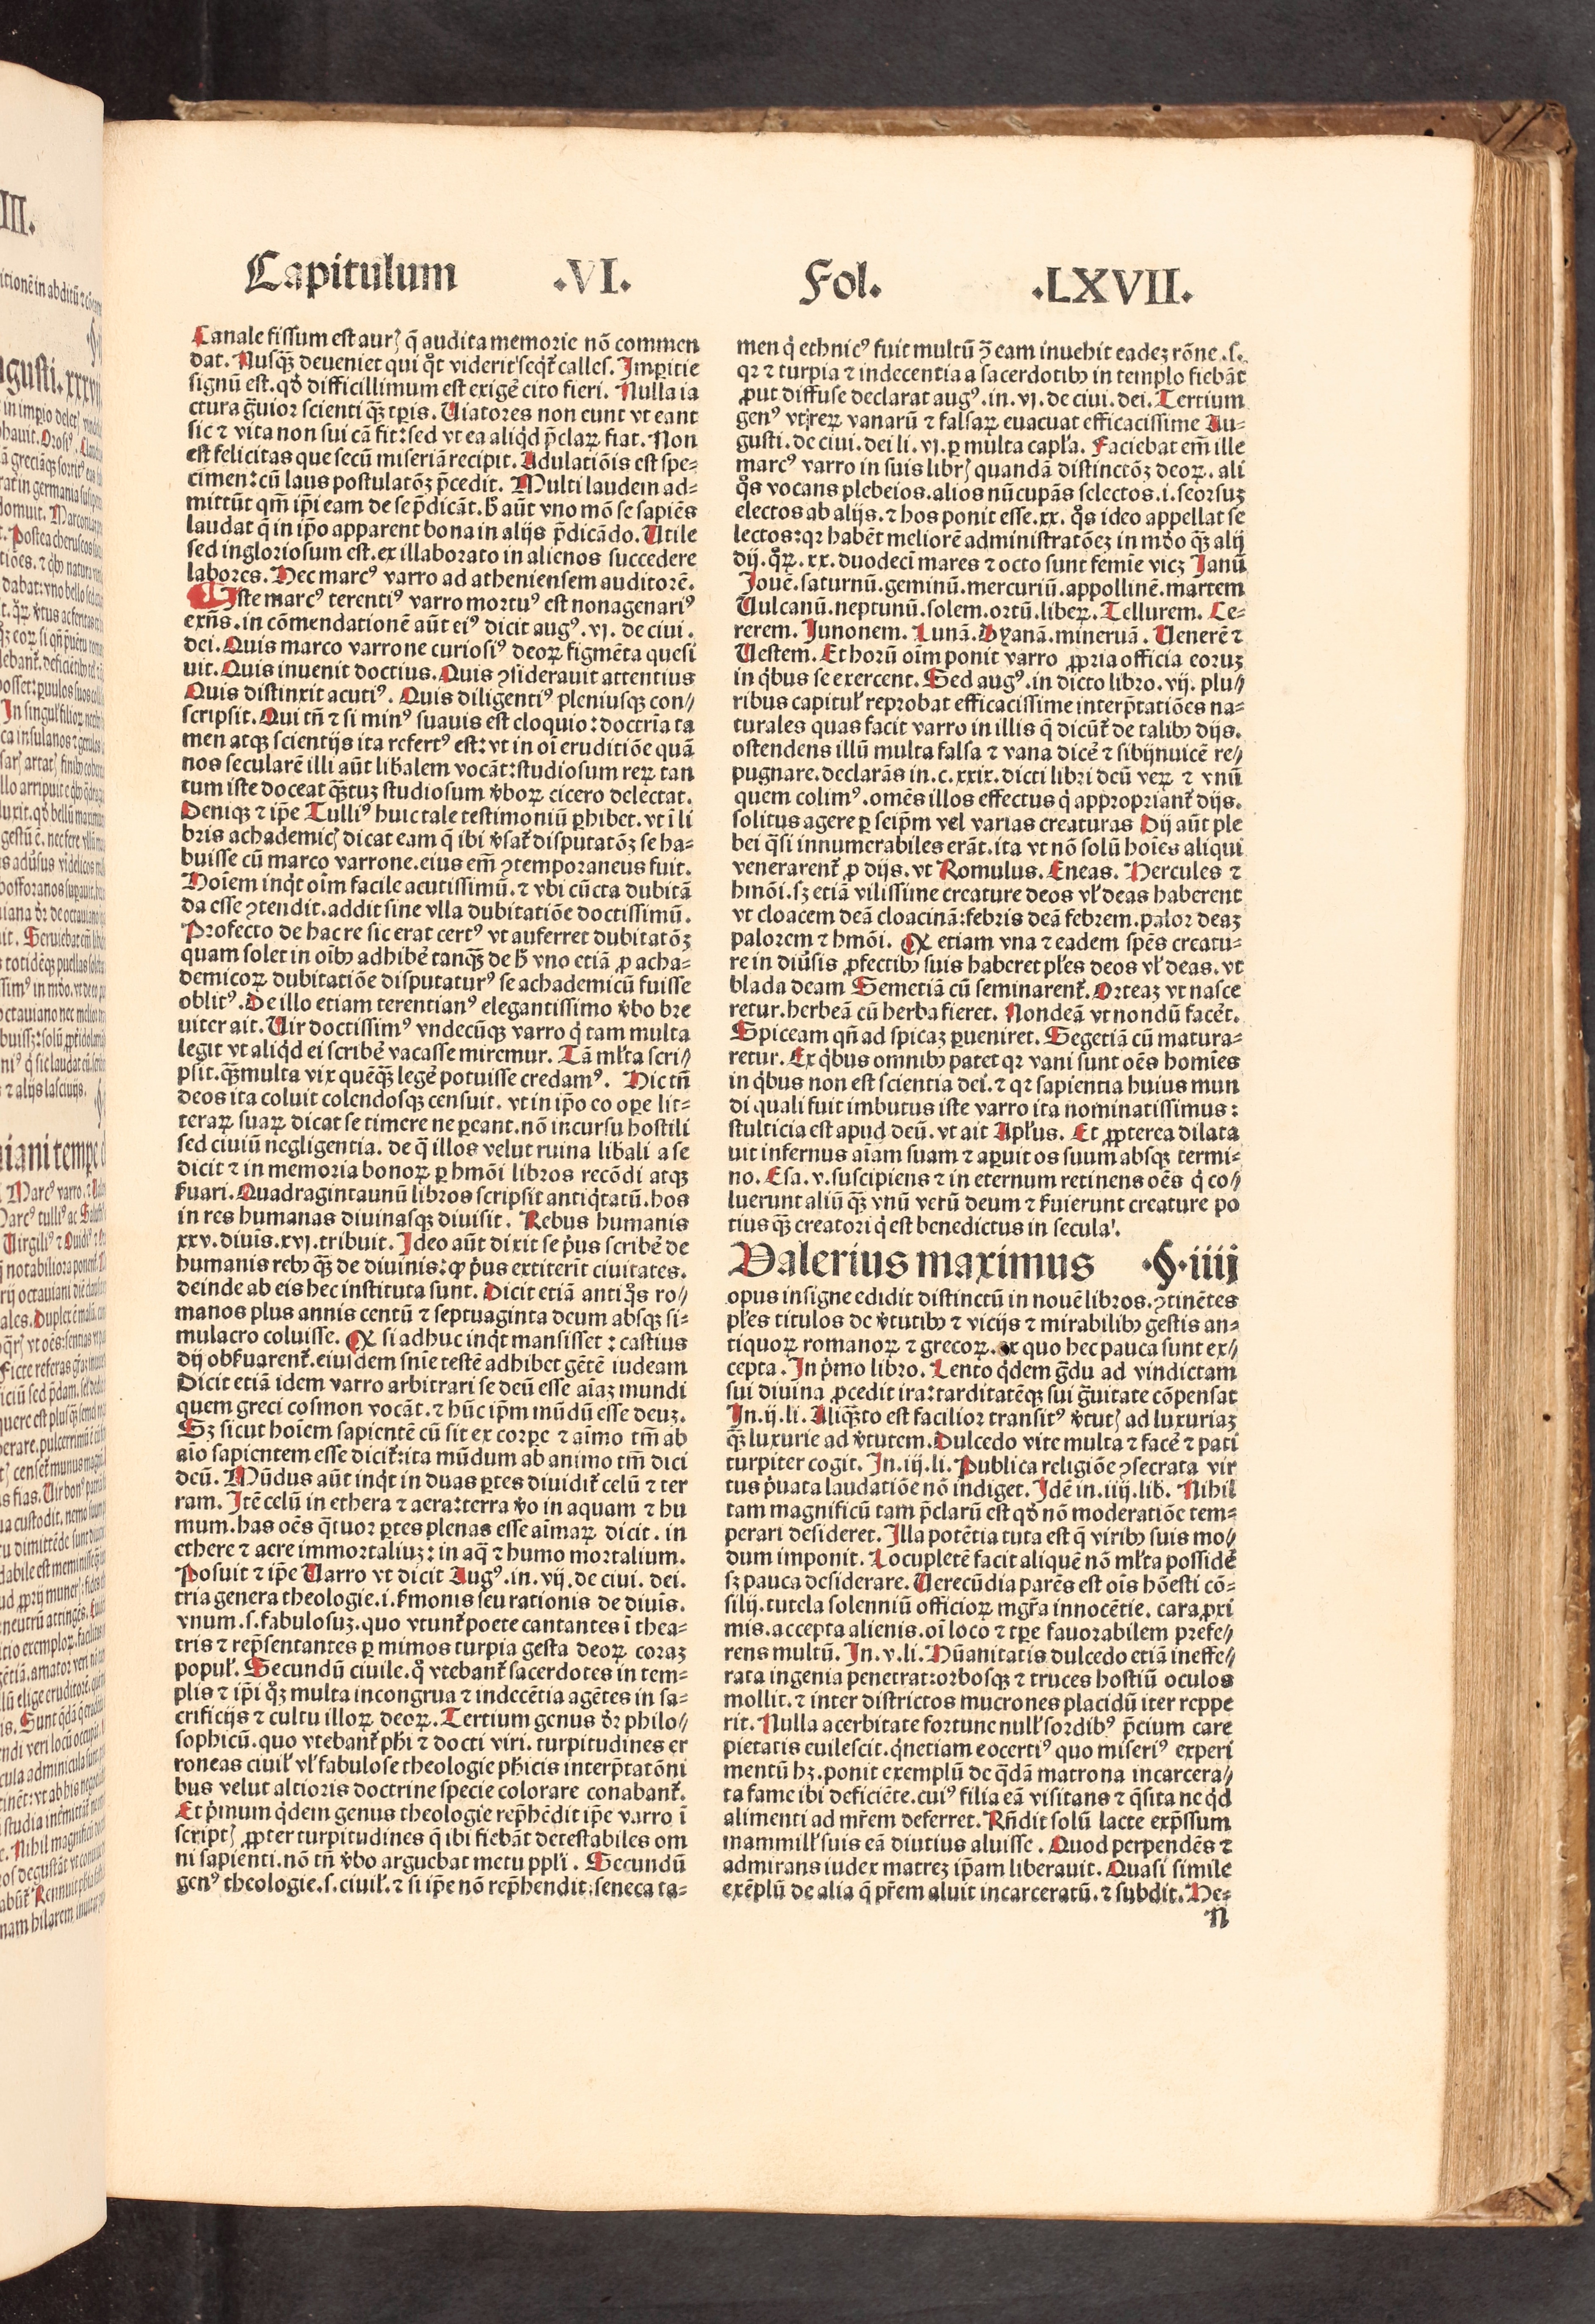 Capitulum .VI. Fol. .LXVII.
Canale fissum est aurꝭ q̄ audita memorie nō commen
dat. Nusq̄ꝫ deueniet qui qͦt viderit seqͥt᷑ calles. Imperitie
signū est. qđ difficillimum est exigē cito fieri. Nulla ia
ctura g̃uior scienti q̄ꝫ tꝑis. Uiatores non eunt vt eant
sic ⁊ vita non sui cā fit: sed vt ea aliqͥd p̄claꝝ fiat. Non
est felicitas que secū miseriā recipit. Adulatiōis est spe⸗
cimen: cū laus postulatōꝫ p̄cedit. Multi laudem ad⸗
mittūt qm̄ ip̄i eam de se p̄dicāt. hͦ aūt vno mō se sapiēs
laudat q̄ in ip̄o apparent bona in alijs p̄dicādo. Utile
sed ingloriosum est. ex illaborato in alienos succedere
labores. Hec marcꝰ varro ad atheniensem auditorē.
Iste marcꝰ terentiꝰ varro mortuꝰ est nonagenariꝰ
exn̄s. in cōmendationē aūt eiꝰ dicit augꝰ. vj. de ciui.
dei. Quis marco varrone curiosiꝰ deoꝝ figmēta quesi
uit. Quis inuenit doctius. Quis ꝯsiderauit attentius
Quis distinxit acutiꝰ. Quis diligentiꝰ pleniusqꝫ con⸗
scripsit. Qui tn̄ ⁊ si minꝰ suauis est eloquio: doctrīa ta
men atqꝫ scientijs ita refertꝰ est: vt in oī eruditiōe quā
nos secularē illi aūt lib̄alem vocāt: studiosum reꝝ tan
tum iste doceat q̄ꝫtuꝫ studiosum v̄boꝝ cicero delectat.
Deniqꝫ ⁊ ip̄e Tulliꝰ huic tale testimoniū ꝑhibet. vt ī li
bris achademicꝭ dicat eam q̄ ibi v̄sat᷑ disputatōꝫ se ha⸗
buisse cū marco varrone. eius em̄ ꝯtemporaneus fuit.
Hoīem inqͥt oīm facile acutissimū. ⁊ vbi cūcta dubitā
da esse ꝯtendit. addit sine vlla dubitatiōe doctissimū.
Profecto de hac re sic erat certꝰ vt auferret dubitatōꝫ
quam solet in oībꝫ adhibē tanq̄ꝫ de hͦ vno etiā ꝓ acha⸗
demicoꝝ dubitatiōe disputaturꝰ se achademicū fuisse
oblitꝰ. De illo etiam terentianꝰ elegantissimo v̄bo bre
uiter ait. Uir doctissimꝰ vndecūqꝫ varro qͥ tam multa
legit vt aliqͥd ei scribē vacasse miremur. Tā ml̄ta scri⸗
psit. q̄ꝫ multa vix quēq̄ꝫ legē potuisse credamꝰ. Hic tn̄
deos ita coluit colendosqꝫ censuit. vt in ip̄o eo oꝑe lit⸗
teraꝝ suaꝝ dicat se timere ne ꝑeant. nō incursu hostili
sed ciuiū negligentia. de q̄ illos velut ruina lib̄ali a se
dicit ⁊ in memoria bonoꝝ ꝑ hmōi libros recōdi atqꝫ
ẜuari. Quadragintaunū libros scripsit antiqͥtatū. hos
in res humanas diuinasqꝫ diuisit. Rebus humanis
xxv. diuis̄. xvj. tribuit. Ideo aūt dixit se pͥus scribē de
humanis rebꝫ q̄ꝫ de diuinis: qꝫ pͥus extiterīt ciuitates.
deinde ab eis hec instituta sunt. Dicit etiā antiqͦs ro⸗
manos plus annis centū ⁊ septuaginta deum absqꝫ si⸗
mulacro coluisse. Qꝫ si adhuc inqͥt mansisset: castius
dij obẜuarent᷑. eiusdem sn̄ie testē adhibet gētē iudeam
Dicit etiā idem varro arbitrari se deū esse aīaꝫ mundi
quem greci cosmon vocāt. ⁊ hūc ip̄m mūdū esse deuꝫ.
Sꝫ sicut hoīem sapientē cū sit ex corꝑe ⁊ aīmo tm̄ ab
aīo sapientem esse dicit᷑: ita mūdum ab animo tm̄ dici
deū. Mūdus aūt inqͥt in duas ꝑtes diuidit᷑ celū ⁊ ter
ram. Itē celū in ethera ⁊ aera: terra v̄o in aquam ⁊ hu
mum. has oēs q̄tuor ꝑtes plenas esse aīmaꝝ dicit. in
ethere ⁊ aere immortaliuꝫ: in aq̄ ⁊ humo mortalium.
Posuit ⁊ ip̄e Uarro vt dicit Augꝰ. in. vij. de ciui. dei.
tria genera theologie. i. ẜmonis seu rationis de diuis̄.
vnum. s. fabulosuꝫ. quo vtunt᷑ poete cantantes ī thea⸗
tris ⁊ rep̄sentantes ꝑ mimos turpia gesta deoꝝ coraꝫ
popul̄. Secundū ciuile. qͦ vtebant᷑ sacerdotes in tem⸗
plis ⁊ ip̄i qͦꝫ multa incongrua ⁊ indecētia agētes in sa⸗
crificijs ⁊ cultu illoꝝ deoꝝ. Tertium genus dr̄ philo⸗
sophicū. quo vtebant᷑ ph̄i ⁊ docti viri. turpitudines er
roneas ciuil̄ vl̄ fabulose theologie ph̄icis interp̄tatōni
bus velut altioris doctrine specie colorare conabant᷑.
Et pͥmum qͥdem genus theologie rep̄hēdit ip̄e varro ī
scriptꝭ ꝓpter turpitudines q̄ ibi fiebāt detestabiles om
ni sapienti. nō tn̄ v̄bo arguebat metu ppl̄i. Secundū
genꝰ theologie. s. ciuil̄. ⁊ si ip̄e nō rep̄hendit: seneca ta⸗
men qͥ ethnicꝰ fuit multū ꝯ̄ eam inuehit eadeꝫ rōne. s.
qꝛ ⁊ turpia ⁊ indecentia a sacerdotibꝫ in templo fiebāt
ꝓut diffuse declarat augꝰ. in. vj. de ciui. dei. Tertium
genꝰ vt reꝝ vanarū ⁊ falsaꝝ euacuat efficacissime Au⸗
gusti. de ciui. dei li. vj. ꝑ multa capl̄a. Faciebat em̄ ille
marcꝰ varro in suis librꝭ quandā distinctōꝫ deoꝝ. ali
qͦs vocans plebeios. alios nūcupās selectos. i. seorsuꝫ
electos ab alijs. ⁊ hos ponit esse. xx. qͦs ideo appellat se
lectos: qꝛ habēt meliorē administratōeꝫ in mūdo q̄ꝫ alij
dij. qͦꝝ. xx. duodecī mares ⁊ octo sunt femīe vicꝫ Janū
Jouē. saturnū. geminū. mercuriū. appollinē. martem
Uulcanū. neptunū. solem. ortū. libeꝝ. Tellurem. Ce⸗
rerem. Junonem. Lunā. Dyanā. mineruā. Uenerē ⁊
Uestem. Et horū oīm ponit varro ꝓpria officia eoruꝫ
in qͥbus se exercent. Sed augꝰ. in dicto libro. vij. plu⸗
ribus capitul̄ reprobat efficacissime interp̄tatiōes na⸗
turales quas facit varro in illis q̄ dicūt᷑ de talibꝫ dijs.
ostendens illū multa falsa ⁊ vana dicē ⁊ sibijnuicē re⸗
pugnare. declarās in. c. xxix. dicti libri deū veꝝ ⁊ vnū
quem colimꝰ. omēs illos effectus qͥ appropriant᷑ dijs.
solitus agere ꝑ seip̄m vel varias creaturas Dij aūt ple
bei q̄si innumerabiles erāt. ita vt nō solū hoīes aliqui
venerarent᷑ ꝓ dijs. vt Romulus. Eneas. Hercules ⁊
hmōi. sꝫ etiā vilissime creature deos vl̄ deas haberent
vt cloacem deā cloacinā: febris deā febrem. palor deaꝫ
palorem ⁊ hmōi. Qꝫ etiam vna ⁊ eadem spēs creatu⸗
re in diūsis ꝓfectibꝫ suis haberet pl̄es deos vl̄ deas. vt
blada deam Semetiā cū seminarent᷑. Orteaꝫ vt nasce
retur. herbeā cū herba fieret. Nondeā vt nondū facēt.
Spiceam qn̄ ad spicaꝫ ꝑueniret. Segetiā cū matura⸗
retur. Ex qͥbus omnibꝫ patet qꝛ vani sunt oēs homīes
in qͥbus non est scientia dei. ⁊ qꝛ sapientia huius mun
di quali fuit imbutus iste varro ita nominatissimus:
stulticia est apud deū. vt ait Apl̄us. Et ꝓpterea dilata
uit infernus aīam suam ⁊ aperuit os suum absqꝫ termi⸗
no. Esa. v. suscipiens ⁊ in eternum retinens oēs qͥ co⸗
luerunt aliū q̄ꝫ vnū verū deum ⁊ ẜuierunt creature po
tius q̄ꝫ creatori qͥ est benedictus in secula.
Valerius maximus .§. iiij
opus insigne edidit distinctū in nouē libros. ꝯtinētes
pl̄es titulos de v̄tutibꝫ ⁊ vicijs ⁊ mirabilibꝫ gestis an⸗
tiquoꝝ romanoꝝ ⁊ grecoꝝ. ex quo hec pauca sunt ex⸗
cepta. In pͥmo libro. Lento qͥdem g̃du ad vindictam
sui diuina ꝓcedit ira: tarditatēqꝫ sui g̃uitate cōpensat
In. ij. li. Aliq̄ꝫto est facilior transitꝰ v̄tutꝭ ad luxuriaꝫ
q̄ꝫ luxurie ad v̄tutem. Dulcedo vite multa ⁊ facē ⁊ pati
turpiter cogit. In. iij. li. Publica religiōe ꝯsecrata vir
tus pͥuata laudatiōe nō indiget. Idē in. iiij. lib. Nihil
tam magnificū tam p̄clarū est qđ nō moderatiōe tem⸗
perari desideret. Illa potētia tuta est q̄ viribꝫ suis mo⸗
dum imponit. Locupletē facit aliquē nō ml̄ta possidē
sꝫ pauca desiderare. Uerecūdia parēs est oīs hōesti cō⸗
silij. tutela solenniū officioꝝ mgr̄a innocētie. cara ꝓxi
mis. accepta alienis. oī loco ⁊ tꝑe fauorabilem prefe⸗
rens multū. In. v. li. Hūanitatis dulcedo etiā ineffe⸗
rata ingenia penetrat: orbosqꝫ ⁊ truces hostiū oculos
mollit. ⁊ inter districtos mucrones placidū iter reppe
rit. Nulla acerbitate fortune null̄ sordibꝰ p̄cium care
pietatis euilescit. qͥnetiam eo certiꝰ quo miseriꝰ experi
mentū hꝫ. ponit exemplū de q̄dā matrona incarcera⸗
ta fame ibi deficiēte. cuiꝰ filia eā visitans ⁊ q̄sita ne qͥd
alimenti ad mr̄em deferret. Rn̄dit solū lacte exp̄ssum
mammill̄ suis eā diutius aluisse. Quod perpendēs ⁊
admirans iudex matreꝫ ip̄am liberauit. Quasi simile
exēplū de alia q̄ pr̄em aluit incarceratū. ⁊ subdit. He⸗
N